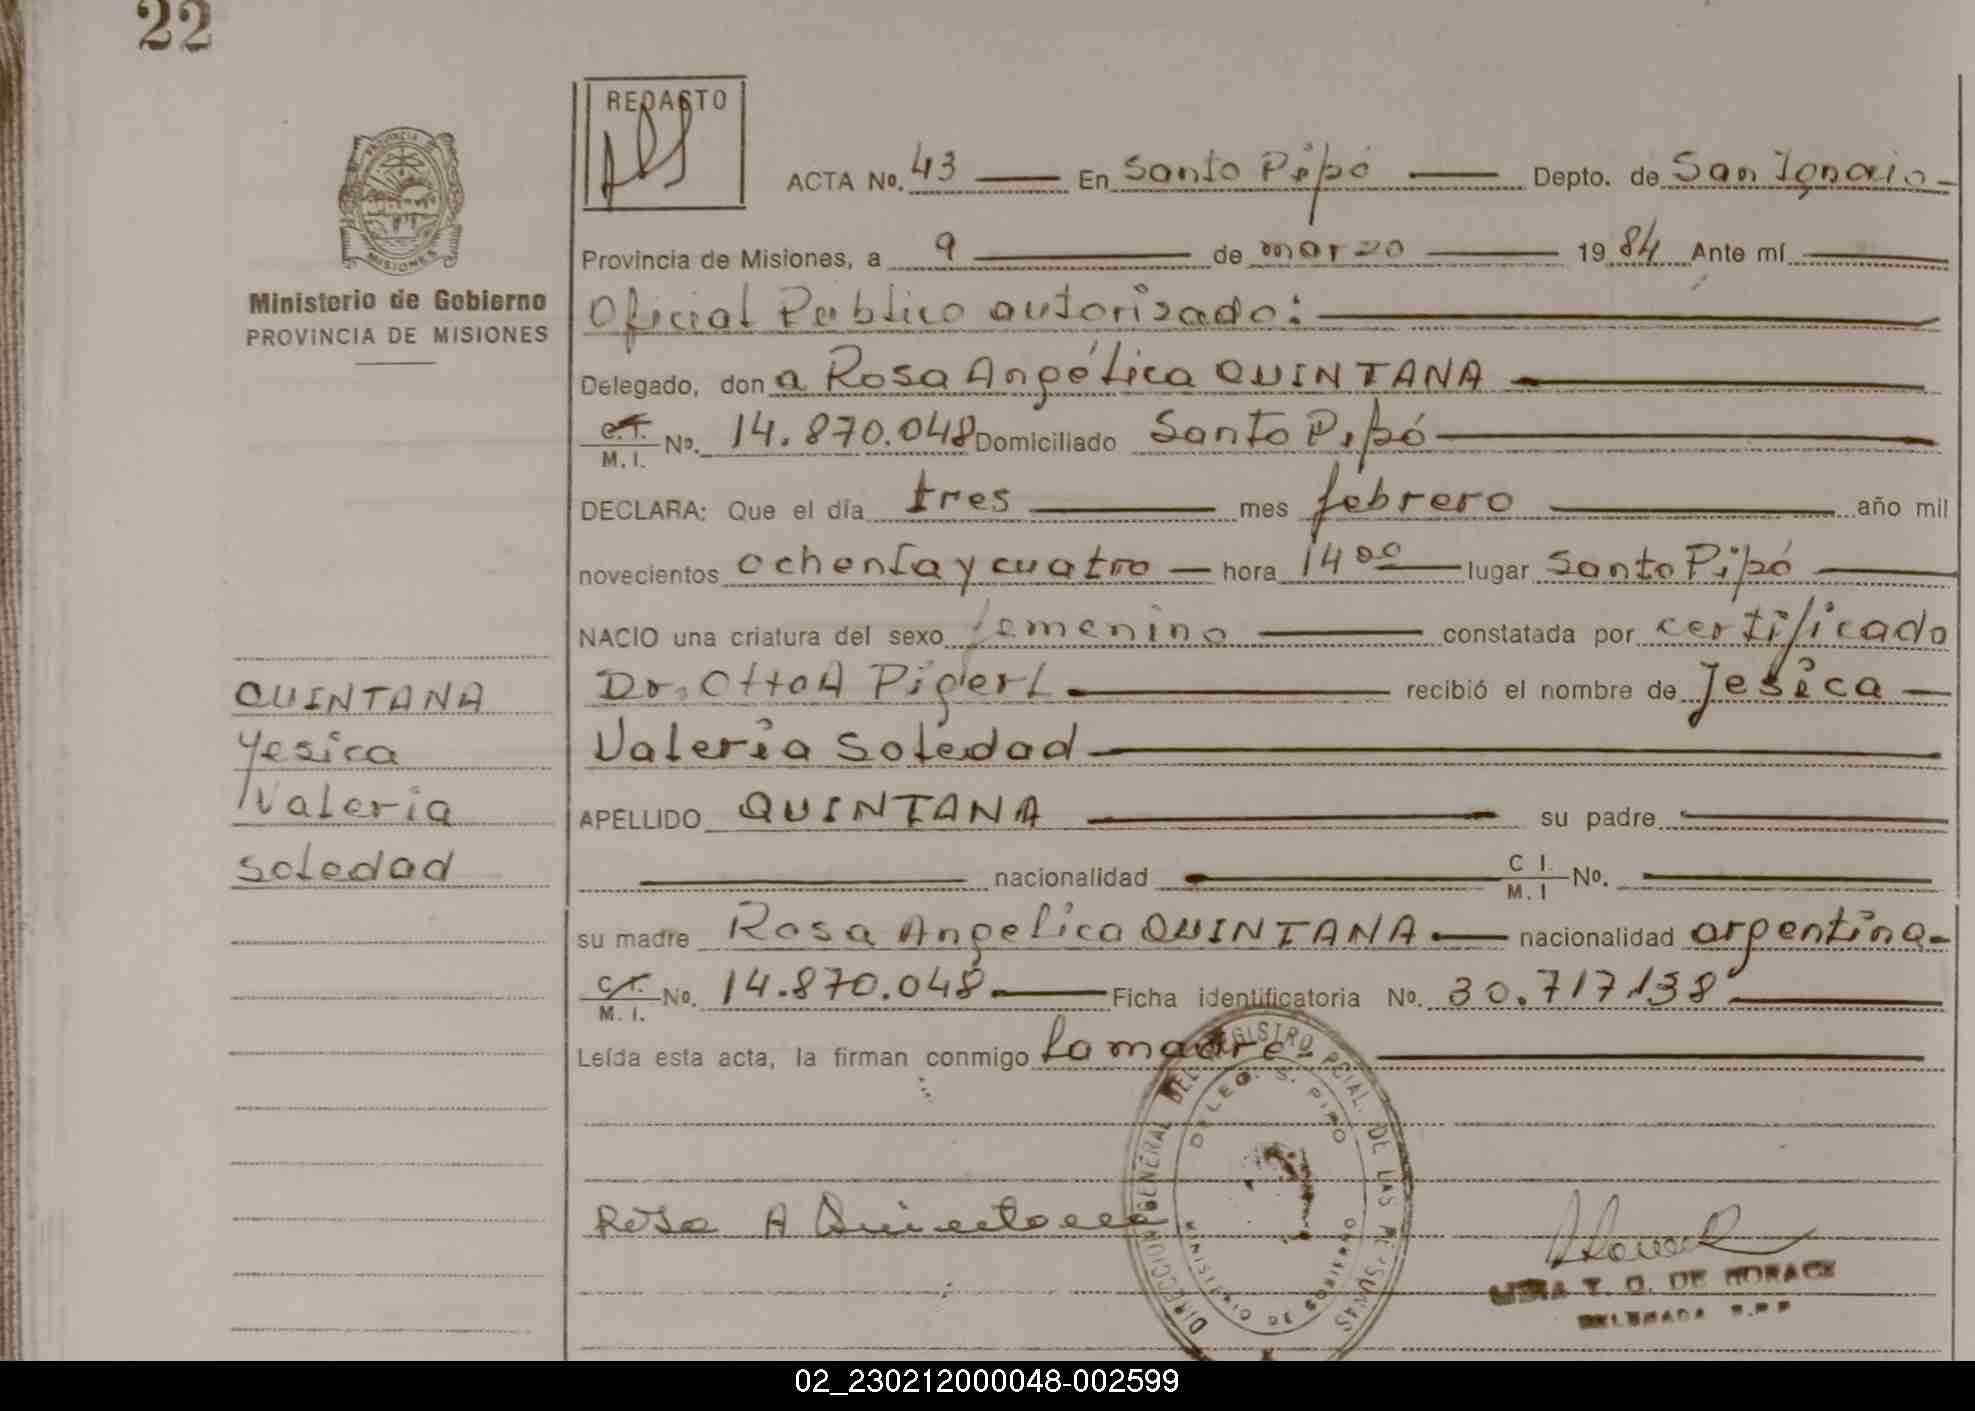 22
REDACTO
ACTA No. 43 En Santo Pipó Depto. de San Ignacio
PROVINCIA DE
MISIONES
Ministerio de Gobierno
PROVINCIA DE MISIONES
Provincia de Misiones, a 9 de marzo 1984 Ante mí
Oficial Público autorizado:
Delegado, don a Rosa Angélica QUINTANA
C.I. M.I. No. 14.870.048 Domiciliado Santo Pipó
DECLARA: Que el día tres mes febrero año mil
novecientos ochenta y cuatro hora 14 00 lugar Santo Pipó
NACIO una criatura del sexo femenino constatada por certificado
Dr. Otto A recibió el nombre de Jesica
Valeria Soledad
QUINTANA
Yesica
Valeria
Soledad
APELLIDO QUINTANA su padre
nacionalidad C I. M. I No.
su madre Rosa Angelica QUINTANA nacionalidad argentina
C.I. M. I. No. 14.870.048 Ficha identificatoria No. 30.717.138
Leída esta acta, la firman conmigo la madre.
DIRECCION GENERAL DEL REGISTRO PCIAL. DE LAS PERSONAS
DELEG. S. PIPO
MINISTERIO DE GOBIERNO
Rosa A Quintana
T. G. DE
DELEGADA R.P.P
02_230212000048-002599